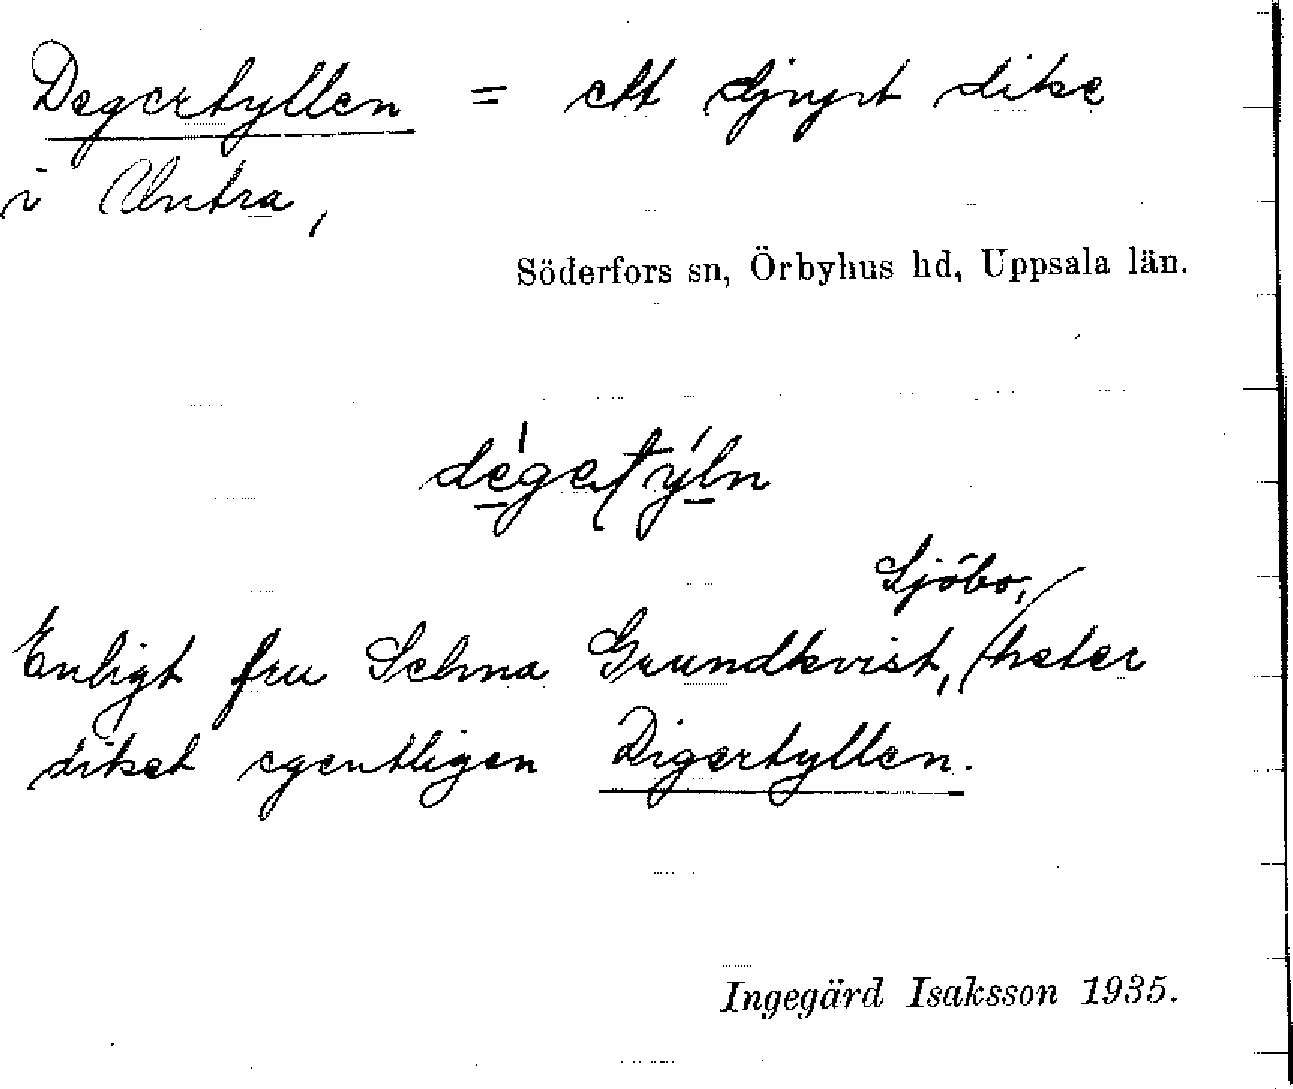 Degertyllen = ett djupt dike
i Untra,
Söderfors sn, Örbyhus hd, Uppsala län.
Sjöbo,
Enligt fru Selma Grundkvist, heter
diket egentligen Digertyllen.
Ingegärd Isaksson 1935.